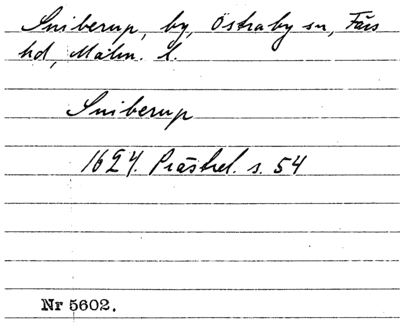 Sniberup, by, Östraby sn, Färs
hd, Malm. l.
Sniberup
1624. Prästrel. s. 54
Nr 5602.